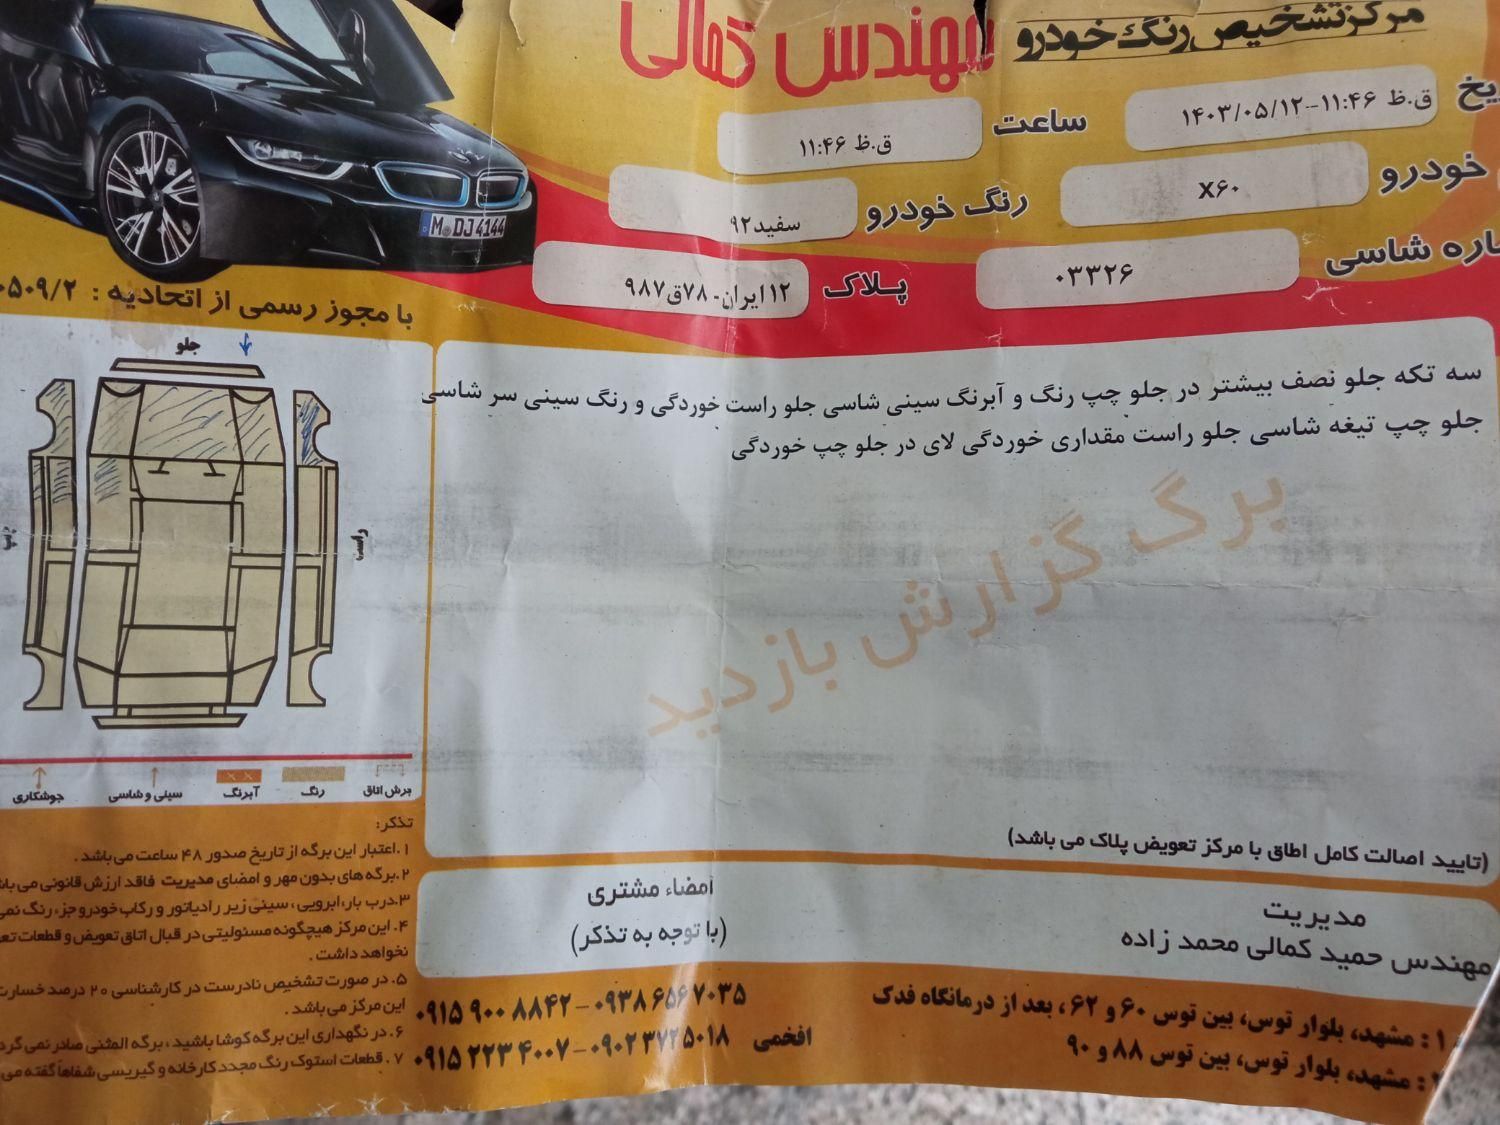 مرکز تشخیص رنگ خودرو
مهندس کمالی
ق.ظ ۱۱:۴۶-۱۴۰۳/۰۵/۱۲
ساعت ق.ظ ۱۱:۴۶
خودرو X۶۰
رنگ خودرو سفید۹۲
شاسی ۰۳۳۲۶
پلاک ۱۲ایران-۷۸ق۹۸۷
M DJ 4144
با مجوز رسمی از اتحادیه :
جلو
راست
سه تکه جلو نصف بیشتر در جلو چپ رنگ و آبرنگ سینی شاسی جلو راست خوردگی و رنگ سینی سر شاسی
جلو چپ تیغه شاسی جلو راست مقداری خوردگی لای در جلو چپ خوردگی
برگ گزارش بازدید
برش اتاق
رنگ
آبرنگ
سینی و شاسی
جوشکاری
(تایید اصالت کامل اطاق با مرکز تعویض پلاک می باشد)
مدیریت
مهندس حمید کمالی محمد زاده
امضاء مشتری
(با توجه به تذکر)
تذکر:
۱.اعتبار این برگه از تاریخ صدور ۴۸ ساعت می باشد .
۲.برگه های بدون مهر و امضای مدیریت فاقد ارزش قانونی می
۳.درب بار، ابرویی ، سینی زیر رادیاتور و رکاب خودرو جزء رنگ
۴. این مرکز هیچگونه مسئولیتی در قبال اتاق تعویض و قطعات
نخواهد داشت .
۵. در صورت تشخیص نادرست در کارشناسی ۲۰ درصد خسارت
این مرکز می باشد .
۶. در نگهداری این برگه کوشا باشید ، برگه المثنی صادر نمی
۷. قطعات استوک رنگ مجدد کارخانه و گیریسی شفاهاً گفته می
۱ : مشهد، بلوار توس، بین توس ۶۰ و ۶۲ ، بعد از درمانگاه فدک
۰۹۱۵ ۹۰۰ ۸۸۴۲ - ۰۹۳۸ ۶۵۶ ۷۰۳۵
: مشهد، بلوار توس، بین توس ۸۸ و ۹۰
افخمی ۰۹۱۵ ۲۲۳ ۴۰۰۷ - ۰۹۰۲ ۳۷۲ ۵۰۱۸